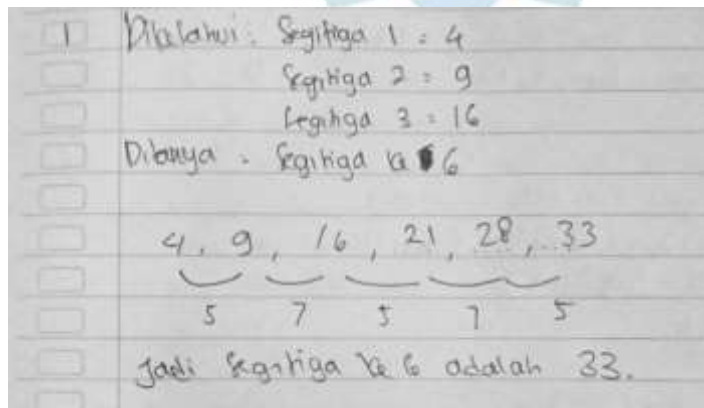 1 Diketahui : Segitiga 1 = 4
Segitiga 2 = 9
Segitiga 3 = 16
Ditanya : Segitiga ke 6
4, 9, 16, 21, 28, 33
5 7 5 7 5
Jadi segitiga ke 6 adalah 33.